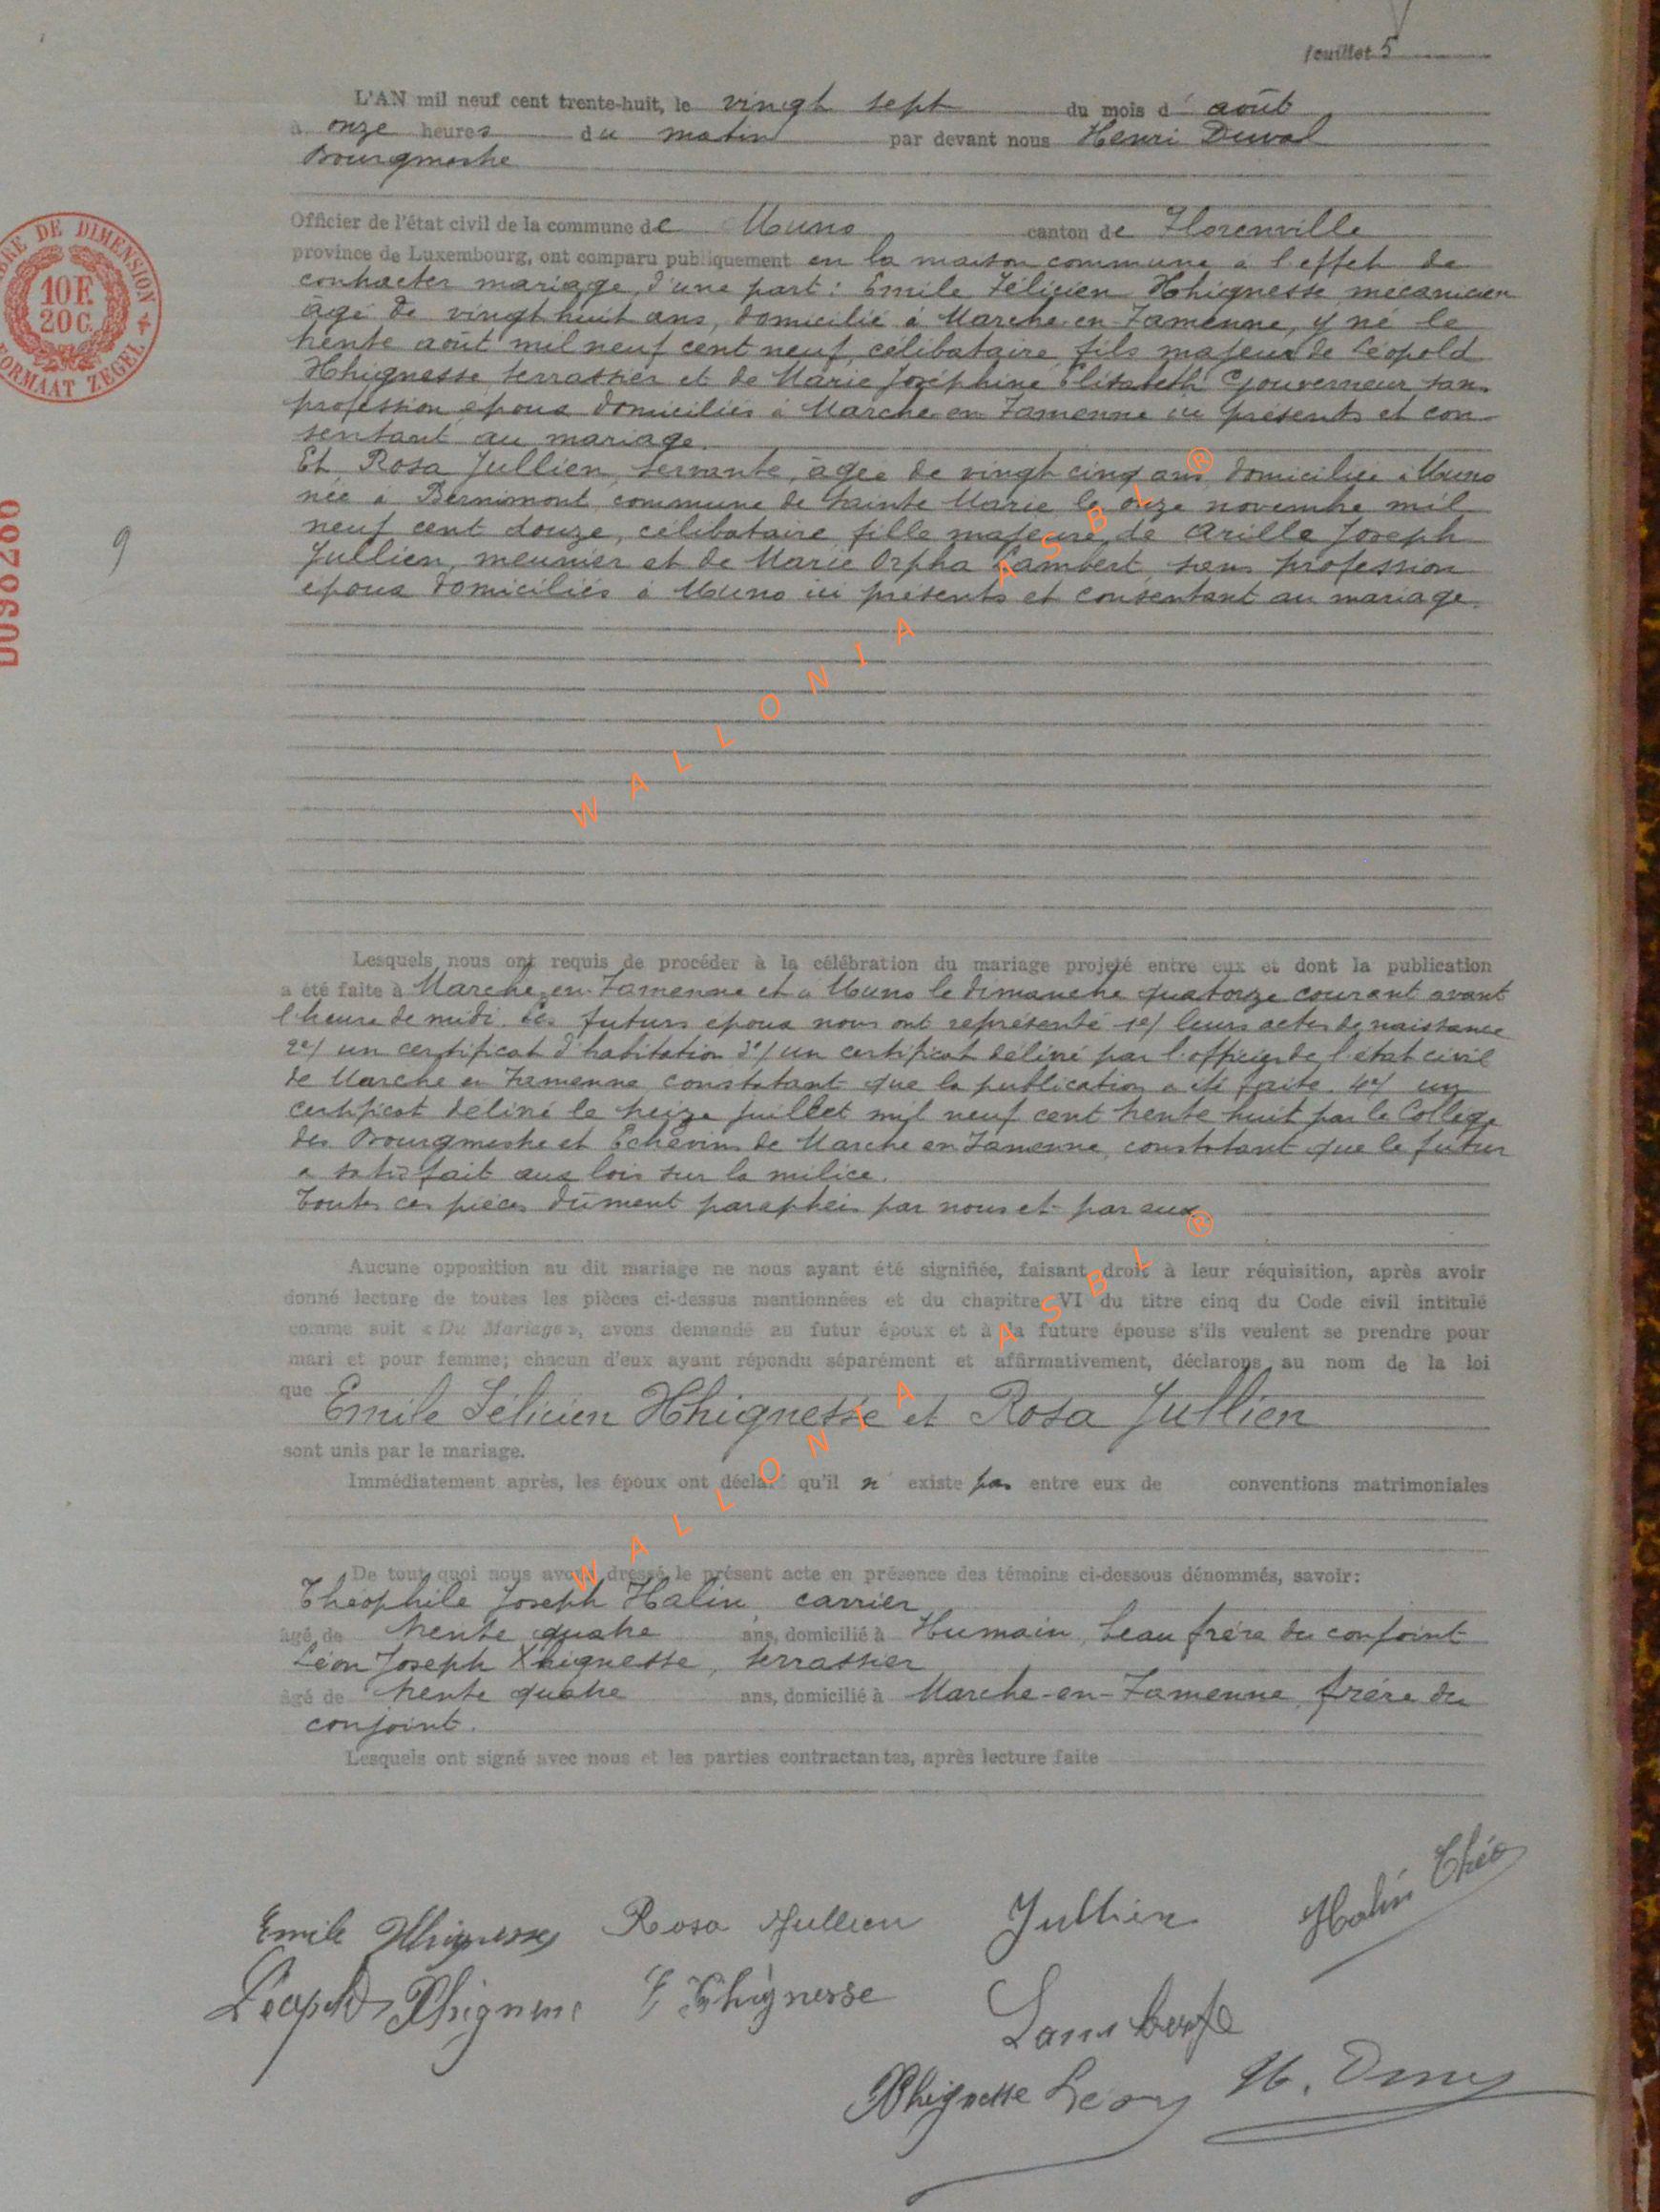 feuillet 5
L'AN mil neuf cent trente-huit, le vingt sept du mois d' août
à onze heures du matin par devant nous Henri Duval
Bourgmestre
Officier de l'état civil de la commune de Muno canton de Florenville
province de Luxembourg, ont comparu publiquement en la maison commune à l'effet de
contracter mariage, d'une part : Emile Félicien Xhignesse mecanicien
âgé de vingt huit ans, domicilié à Marche-en-Famenne, y né le
trente août mil neuf cent neuf, célibataire fils majeur de Léopold
Xhignesse terrassier et de Marie Joséphine Elisabeth Gouverneur sans
profession époux domiciliés à Marche en Famenne ici présents et con
sentant au mariage.
Et Rosa Jullien, servante, âgée de vingt cinq ans domiciliée à Muno
née à Bernimont, commune de Sainte Marie le onze novembre mil
neuf cent douze, célibataire fille majeure de Arille Joseph
Jullien, meunier et de Marie Orpha Lambert, sans profession
époux domiciliés à Muno ici présents et consentant au mariage.
Lesquels nous ont requis de procéder à la célébration du mariage projeté entre eux et dont la publication
a été faite à Marche-en-Famenne et à Muno le dimanche quatorze courant avant
l'heure de midi. Les futurs époux nous ont représenté 1e/ leurs actes de naissance
2e/ un certificat d'habitation 3e/ un certificat délivré par l'officier de l'état civil
de Marche en Famenne constatant que la publication a été faite. 4e/ un
certificat délivré le treize juillet mil neuf cent trente huit par le Collège
des Bourgmestre et Echevins de Marche en Famenne, constatant que le futur
a satisfait aux lois sur la milice.
Toutes ces pièces dûment paraphées par nous et par eux
Aucune opposition au dit mariage ne nous ayant été signifiée, faisant droit à leur réquisition, après avoir
donné lecture de toutes les pièces ci-dessus mentionnées et du chapitre VI du titre cinq du Code civil intitulé
comme suit « Du Mariage », avons demandé au futur époux et à la future épouse s'ils veulent se prendre pour
mari et pour femme; chacun d'eux ayant répondu séparément et affirmativement, déclarons au nom de la loi
que Emile Félicien Xhignesse et Rosa Jullien
sont unis par le mariage.
Immédiatement après, les époux ont déclaré qu'il n' existe pas entre eux de conventions matrimoniales
De tout quoi nous avons dressé le présent acte en présence des témoins ci-dessous dénommés, savoir:
Théophile Joseph Halin carrier
âgé de trente quatre ans, domicilié à Humain, beau frère du conjoint
Léon Joseph Xhignesse, terrassier
âgé de trente quatre ans, domicilié à Marche-en-Famenne, frère du
conjoint.
Lesquels ont signé avec nous et les parties contractantes, après lecture faite
Emile Xhignesse Rosa Jullien Jullien Halin Théo
Léopold Xhignesse E Xhignesse
Lambert
Xhignesse Léon H. Duval
TIMBRE DE DIMENSION
10 F.
20 C.
FORMAAT ZEGEL
D098286
9
WALLONIA ASBL ®
WALLONIA ASBL ®